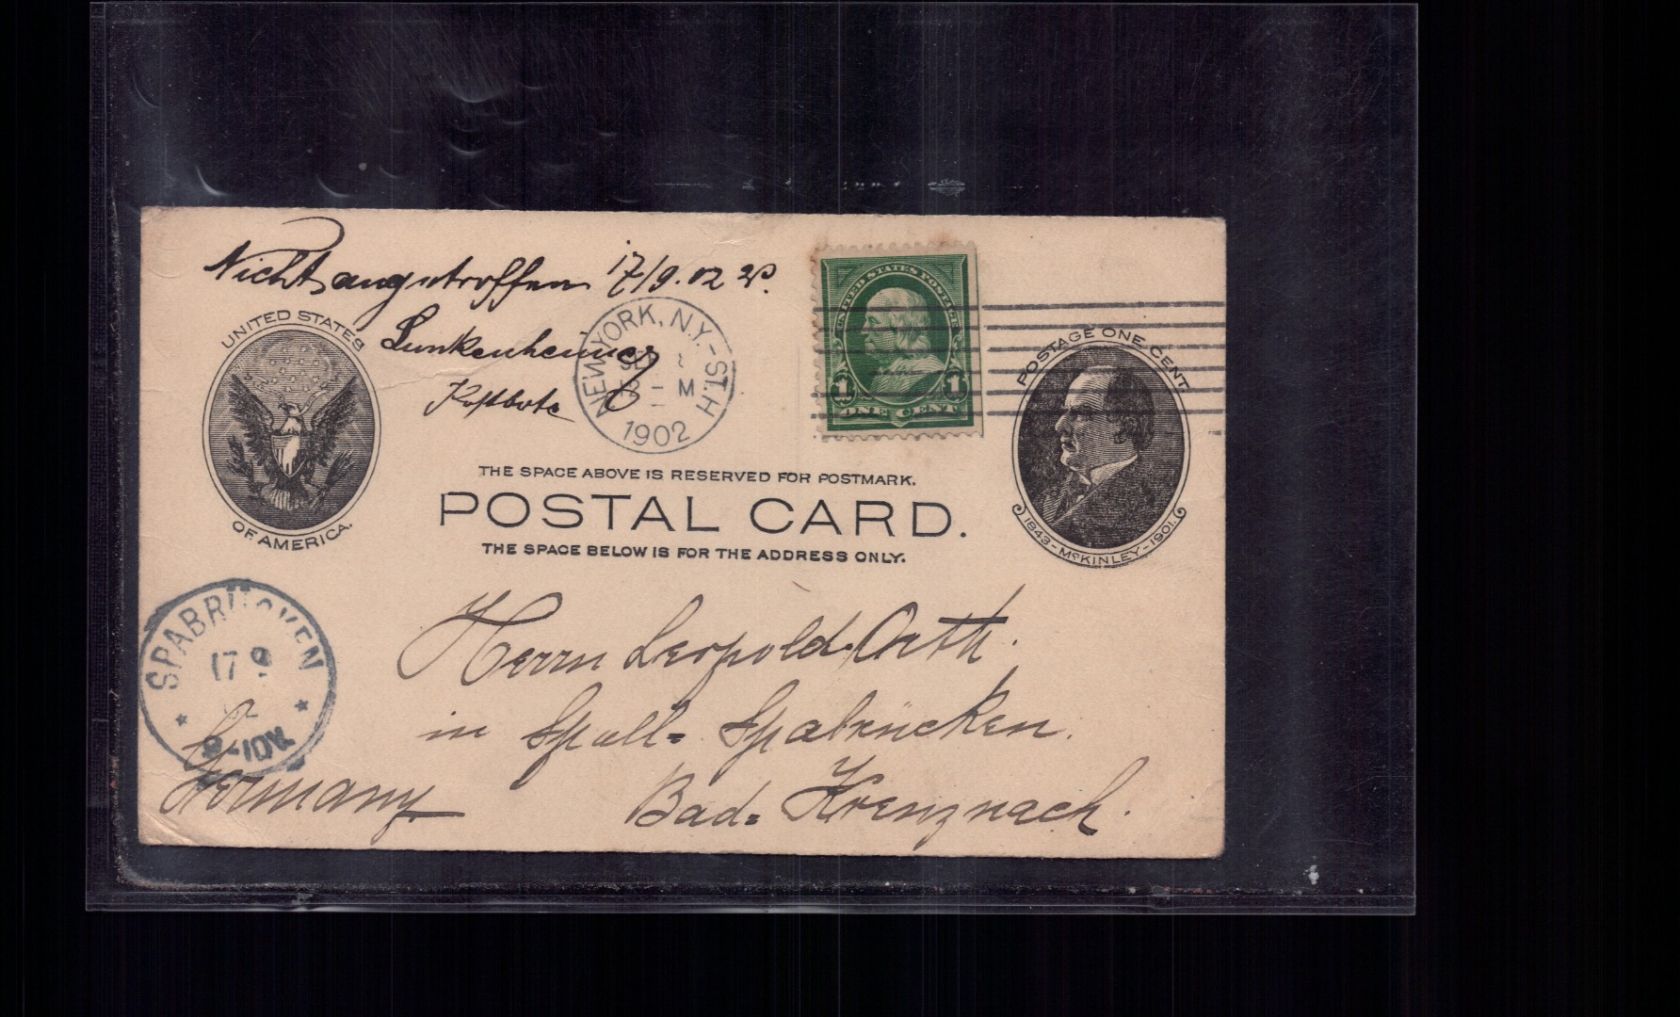 Nicht angetroffen 17/9.02
Lunkenheimer
Postbote
UNITED STATES
OF AMERICA.
NEW YORK, N.Y.-STA.H
SEP
M
1902
UNITED STATES POSTAGE
1 1
ONE CENT
POSTAGE ONE CENT
1843-McKINLEY-1901.
THE SPACE ABOVE IS RESERVED FOR POSTMARK.
POSTAL CARD.
THE SPACE BELOW IS FOR THE ADDRESS ONLY.
SPABRÜCKEN
17 9
2
9-10V.
Herrn Leopold Orth.
in Spall= Spabrücken.
Bad= Kreuznach.
Germany